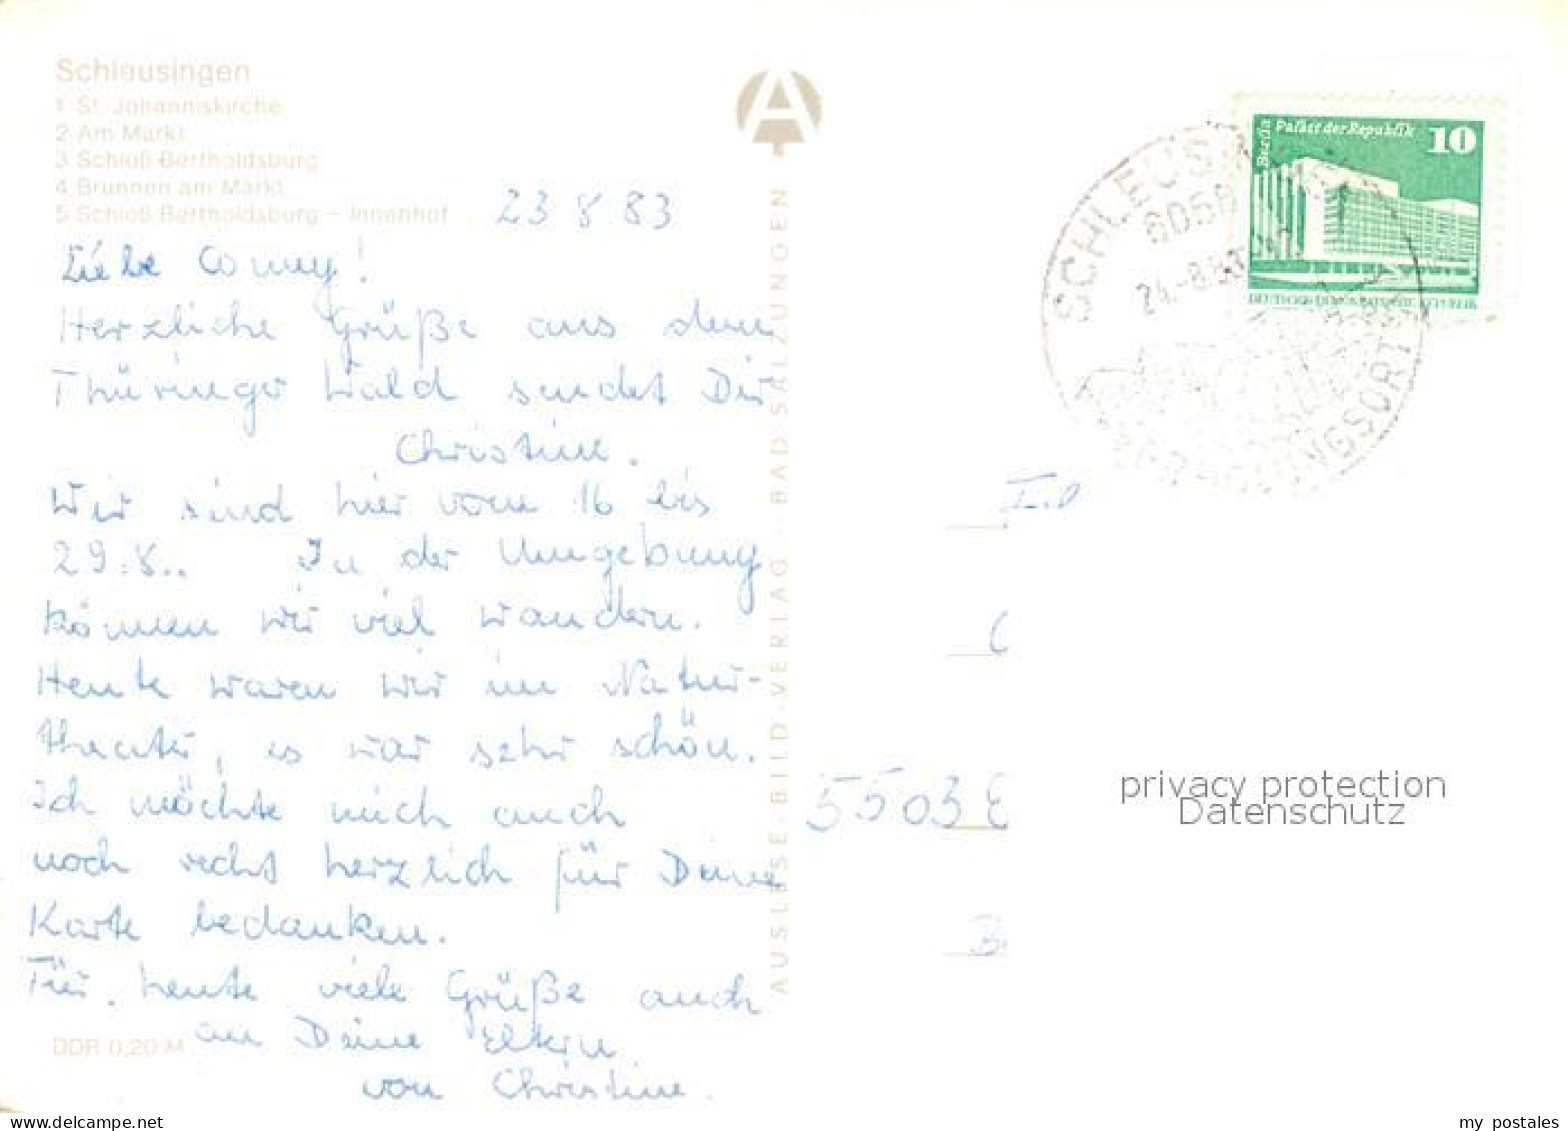 Schleusingen
1 St. Johanniskirche
2 Am Markt
3 Schloß Bertholdsburg
4 Brunnen am Markt
5 Schloß Bertholdsburg – Innenhof
23 8 83
Liebe Conny!
Herzliche Grüße aus dem
Thüringer Wald sendet Dir
Christine.
Wir sind hier vom 16 bis
29.8.. In der Umgebung
können wir viel wandern.
Heute waren wir im Natur-
theater, es war sehr schön.
Ich möchte mich auch
noch recht herzlich für Deine
Karte bedanken.
Für heute viele Grüße auch
an Deine Eltern
von Christine.
DDR 0,20 M
A
AUSLESE-BILD-VERLAG · BAD SALZUNGEN
Berlin Palast der Republik 10
DEUTSCHE DEMOKRATISCHE REPUBLIK
24.-8.83
5503
privacy protection
Datenschutz
www.delcampe.net
my_postales